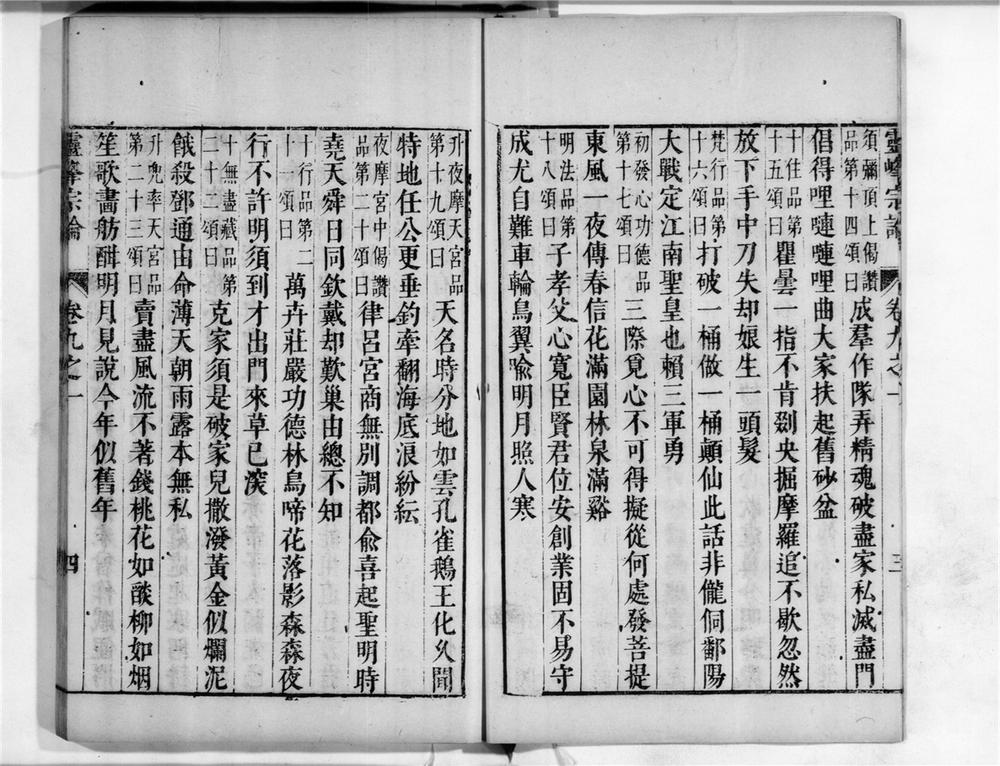 靈峰宗論
卷九之一
三
須彌頂上偈讚
品第十四頌曰
成羣作隊弄精魂破盡家私滅盡門
倡得哩嗹嗹哩曲大家扶起舊砂盆
十住品第
十五頌曰
瞿曇一指不肯劄央掘摩羅追不歇忽然
放下手中刀失却娘生一頭髮
梵行品第
十六頌曰
打破一桶做一桶顛仙此話非儱侗鄱陽
大戰定江南聖皇也賴三軍勇
初發心功德品
第十七頌曰
三際覓心不可得擬從何處發菩提
東風一夜傳春信花滿園林泉滿谿
明法品第
十八頌曰
子孝父心寬臣賢君位安創業固不易守
成尤自難車輪鳥翼喩明月照人寒
升夜摩天宮品
第十九頌曰
天名時分地如雲孔雀鵝王化久聞
特地任公更垂釣牽翻海底浪紛紜
夜摩宮中偈讚
品第二十頌曰
律呂宮商無別調都俞喜起聖明時
堯天舜日同欽戴却歎巢由總不知
十行品第二
十一頌曰
萬卉莊嚴功德林鳥啼花落影森森夜
行不許明須到才出門來草已深
十無盡藏品第
二十二頌曰
克家須是破家兒撒潑黃金似爛泥
餓殺鄧通由命薄天朝雨露本無私
升兜率天宮品
第二十三頌曰
賣盡風流不著錢桃花如燄柳如烟
笙歌畵舫酣明月見說今年似舊年
靈峰宗論
卷九之一
四